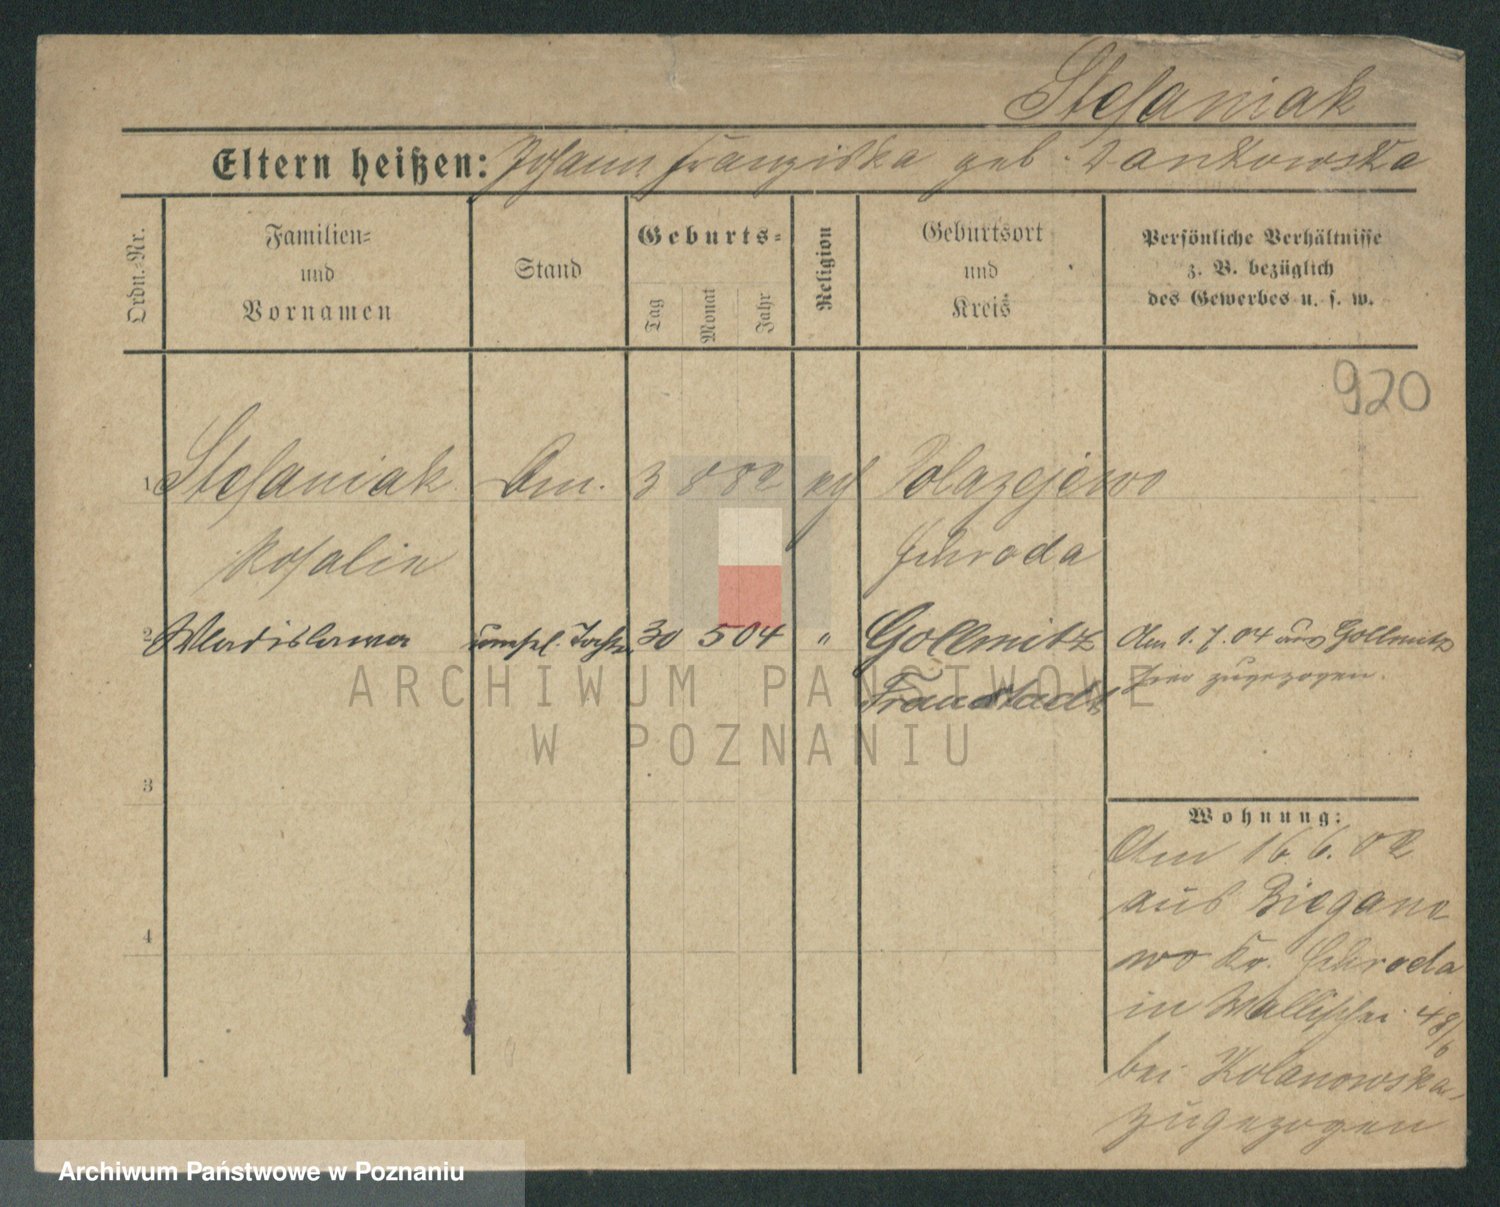 Stefaniak
Eltern heißen: Johann Franziska geb. Jankowska
Ordn.-Nr.
Familien-
und
Vornamen
Stand
Geburts-
Tag
Monat
Jahr
Religion
Geburtsort
und
Kreis
Persönliche Verhältnisse
z. B. bezüglich
des Gewerbes u. s. w.
920
1 Stefaniak 3 8 82 Polazejewo
Rosalie Schroda
2 Wladislawa unehel. Tochter 30 5 04 " Gollmitz Am 1. 7. 04 aus Gollmitz
Fraustadt hier zugezogen.
3
4
Wohnung:
Am 16. 6. 02
aus Biegano
wo Kr. Schroda
in Wallischei 48/6
bei Kolanowska
zugezogen
ARCHIWUM PAŃSTWOWE
W POZNANIU
Archiwum Państwowe w Poznaniu